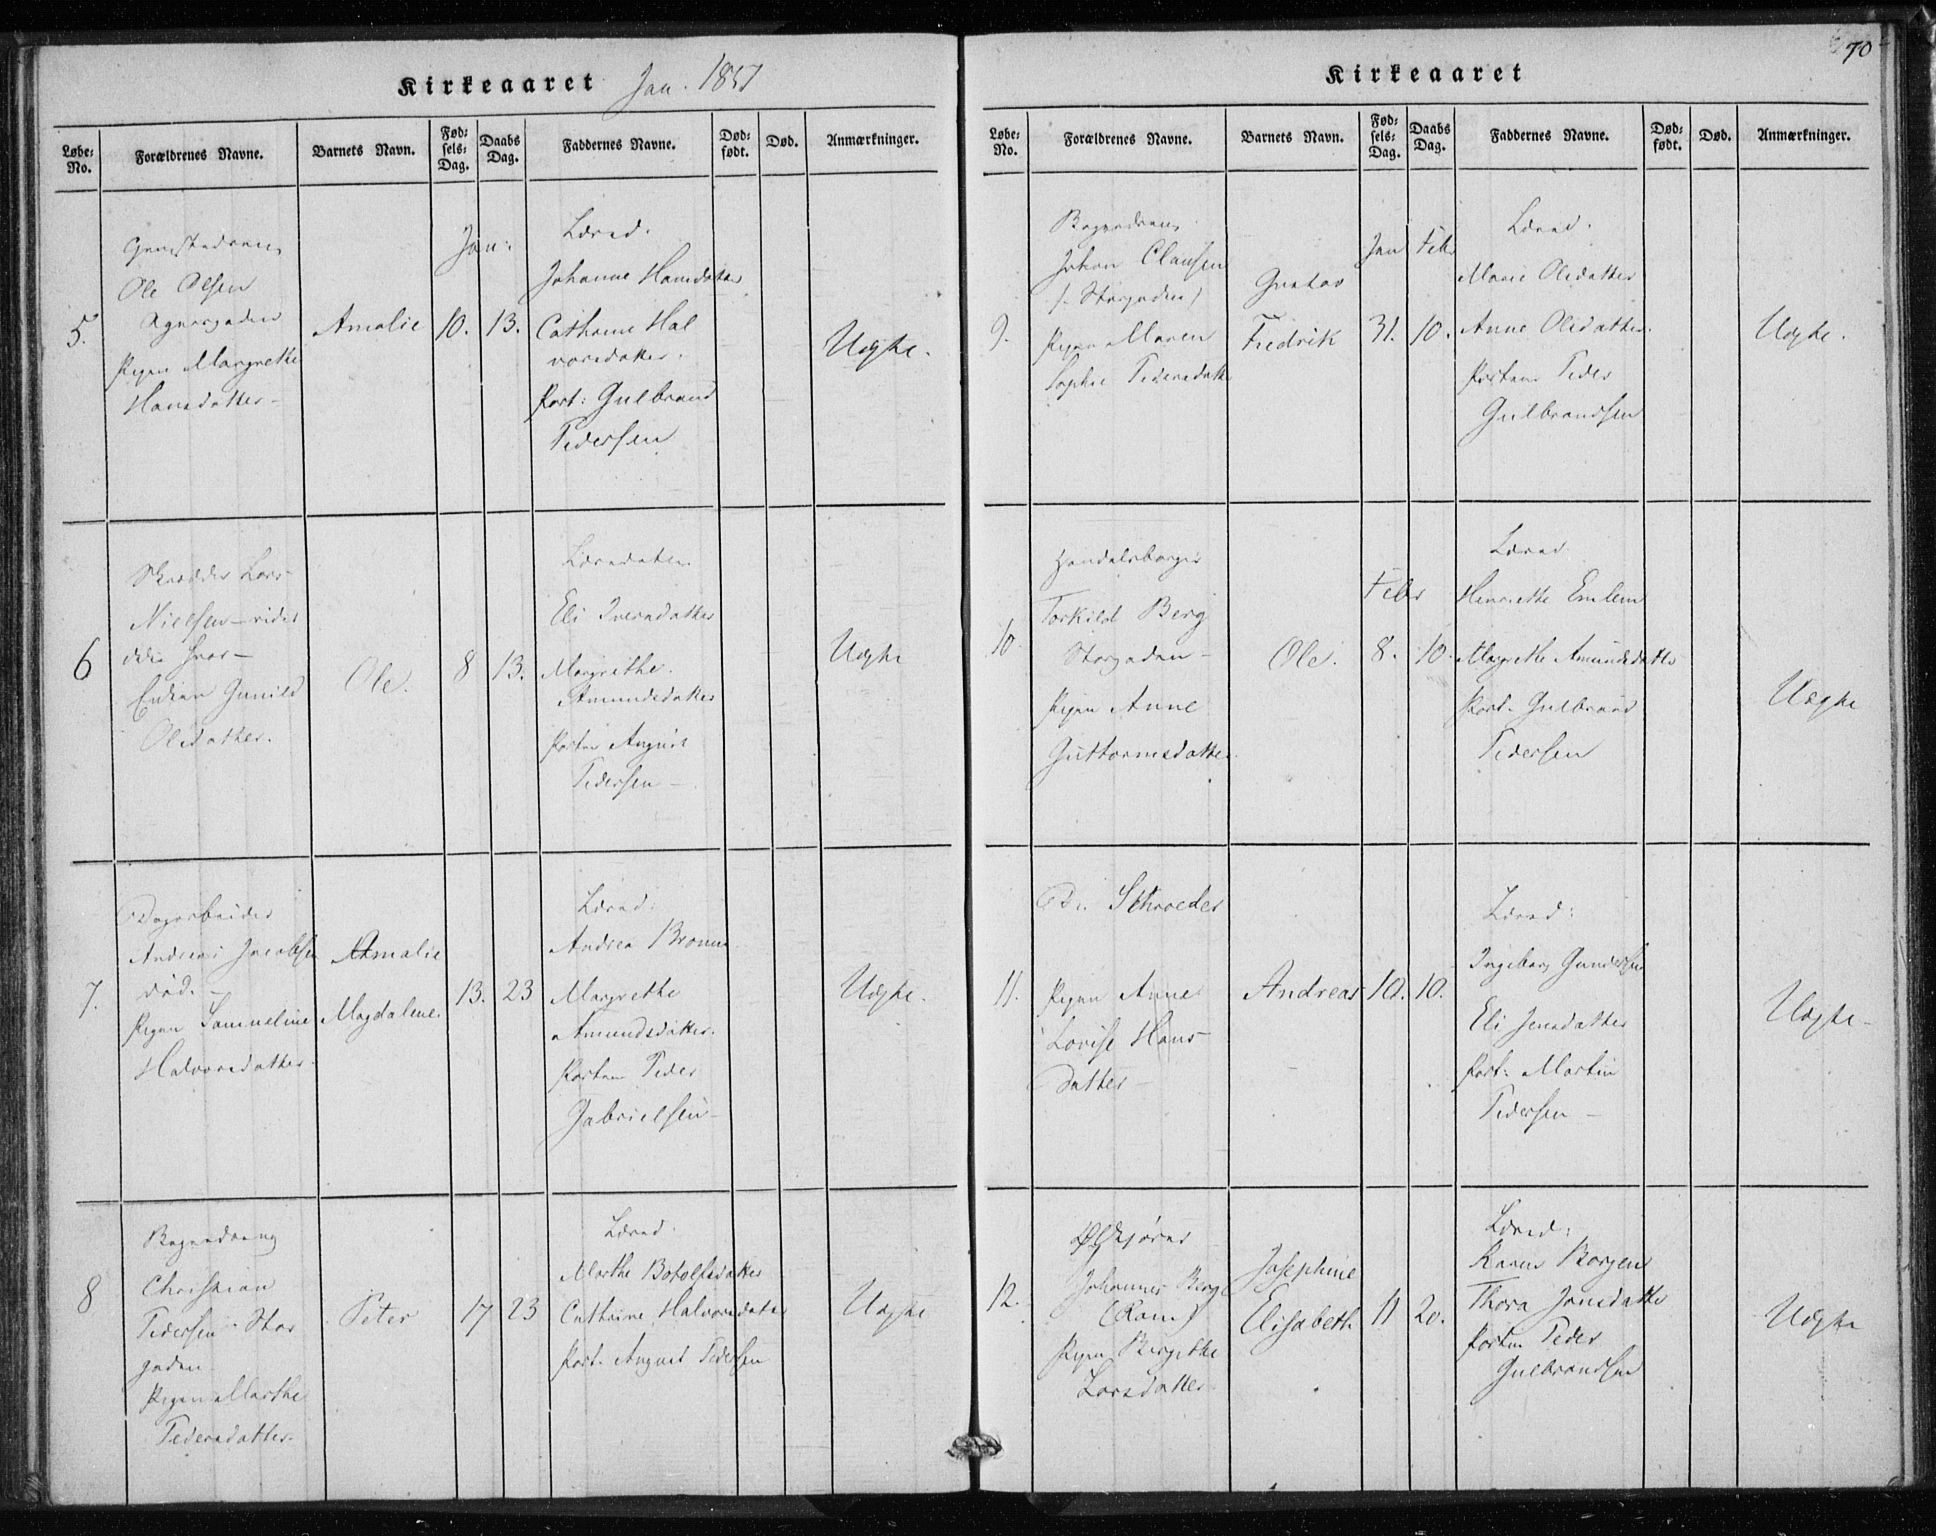 70
Kirkeaaret Jan. 1857
Løbe-No. Forældrenes Navne. Barnets Navn. Fødsels-Dag. Daabs Dag. Faddernes Navne. Dødfødt. Død. Anmærkninger.
5.
Ole Olsen
Pigen Margrethe
Hansdatter
Amalie
Jan:
10. 13.
Johanne Hansdatter
Cathrine Hal
vorsdatter.
Port: Gulbrand
Pedersen
Uægte.
6
Skrædder Lars
Nielsen
Enken Gunild
Olsdatter.
Ole.
8 13.
Eli Iversdatter
Margrethe
Amundsdatter
August
Pedersen
Uægte
7.
Dagarbeider
Andreas Jacobsen
død.
Pigen Samueline
Halvorsdatter.
Amalie
Magdalene
13. 23
Andrea
Margrethe
Amundsdatter.
Peder
Gabrielsen
Uægte.
8
Christian
Pedersen Stor
gaden
Pigen Marthe
Pedersdatter.
Peter
17 23
Marthe Botolfsdatter
Cathrine Halvorsdatter
Port. August Pedersen
Uægte
Kirkeaaret
Løbe-No. Forældrenes Navne. Barnets Navn. Fødsels-Dag. Daabs Dag. Faddernes Navne. Dødfødt. Død. Anmærkninger.
9.
Johan Clausen
/: Storgaden /
Pigen Maren
Sophie Pedersdatter
Gustav
Fredrik
Jan Feb
31. 10.
Marie Olsdatter
Anne Olsdatter.
Peder
Gulbrandsen
Uægte.
10.
Handelsborger
Torkild Berg
Storgaden
Pigen Anne
Guttormsdatter.
Ole.
Febr
8. 10.
Henriette
Margrethe Amundsdatter
Port. Gulbrand
Pedersen
Uægte
11.
Dr. Schroeder
Pigen Anne
Lovise Hans
datter
Andreas
10. 10.
Ingeborg Gundersen
Eli Jensdatter
Port: Martin
Pedersen
Uægte
12.
Johannes Berg
Pigen Birgithe
Larsdatter
Josephine
Elisabeth
11 20.
Karen Borgen
Thora Jonsdatter
Peder
Gulbrandsen
Uægte